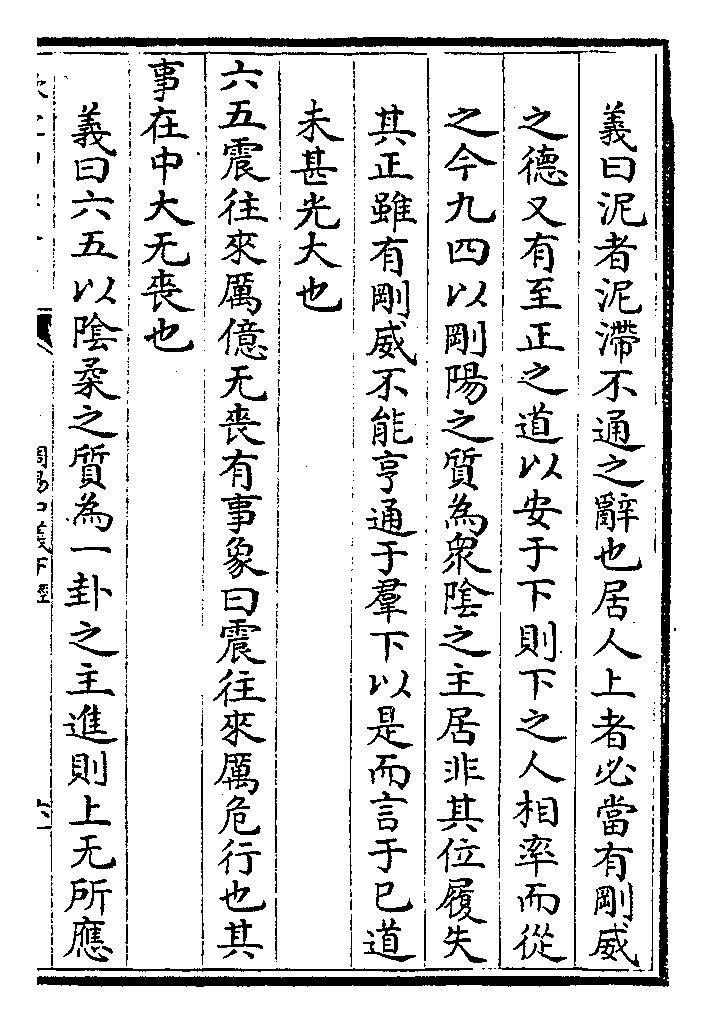 義曰泥者泥滯不通之辭也居人上者必當有剛威
之德又有至正之道以安于下則下之人相率而從
之今九四以剛陽之質為衆陰之主居非其位履失
其正雖有剛威不能亨通于羣下以是而言于已道
未甚光大也
六五震往來厲億无喪有事象曰震往來厲危行也其
事在中大无喪也
義曰六五以陰柔之質為一卦之主進則上无所應